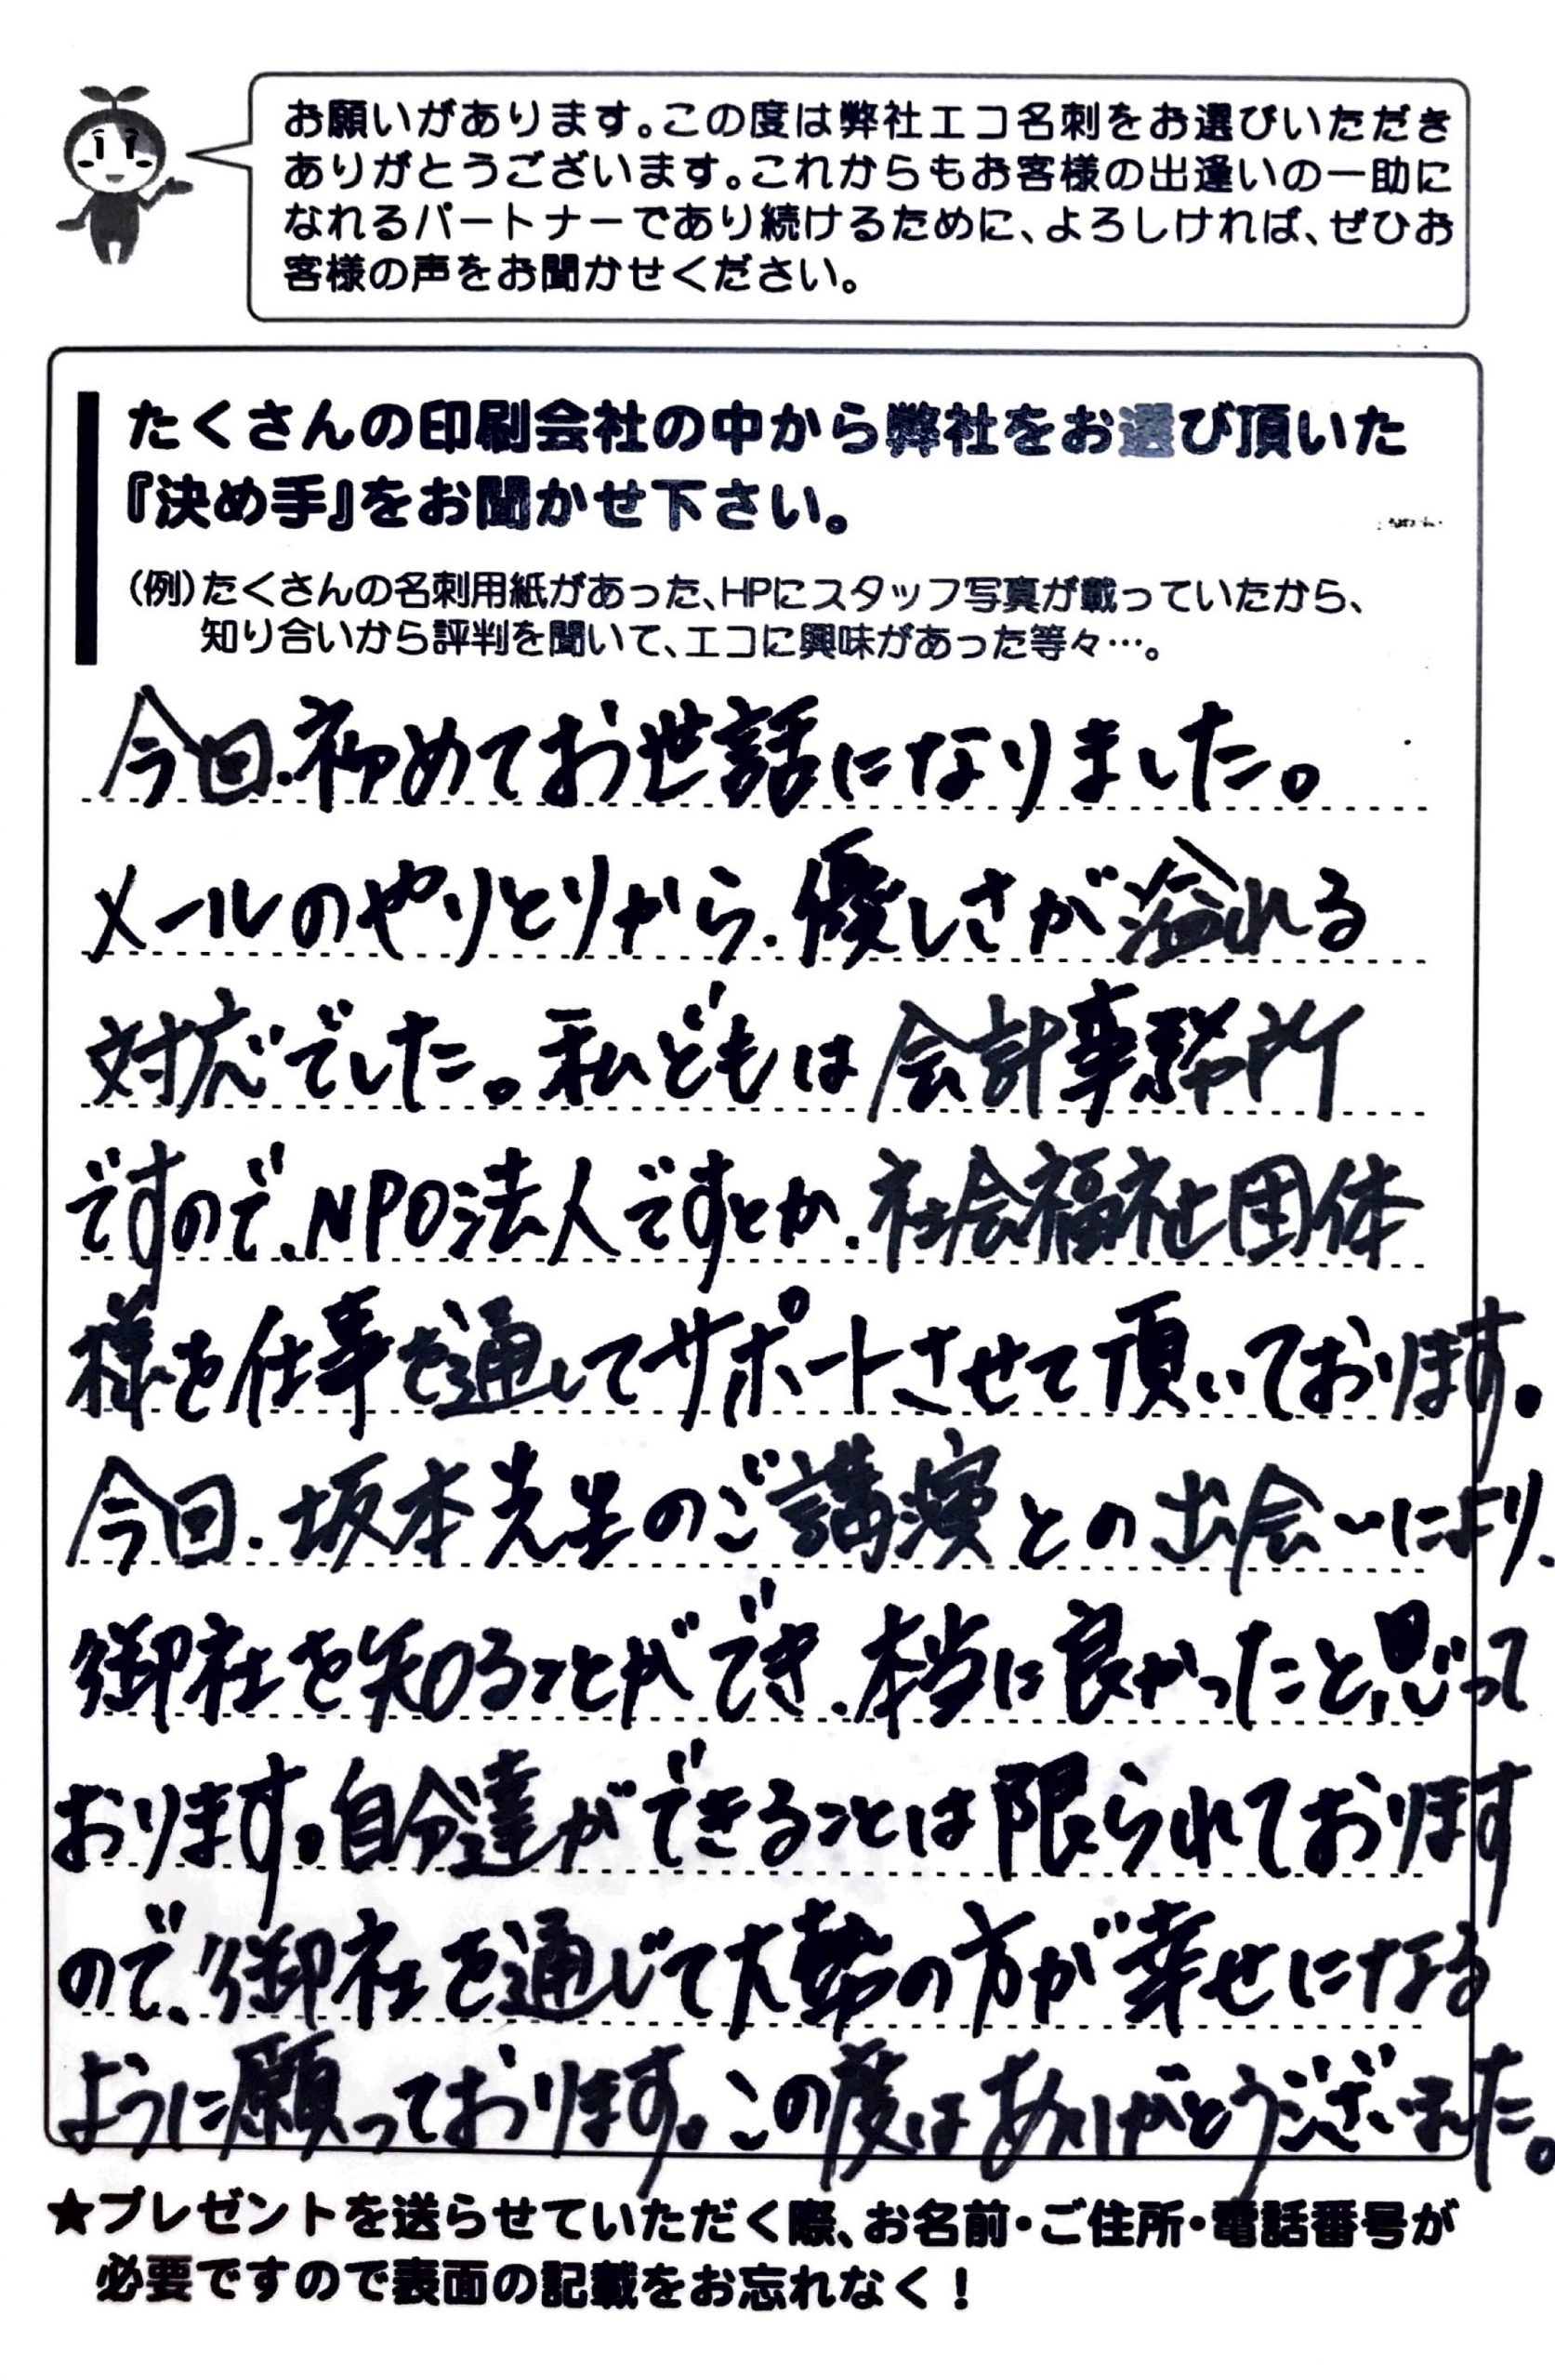 お願いがあります。この度は弊社エコ名刺をお選びいただき
ありがとうございます。これからもお客様の出逢いの一助に
なれるパートナーであり続けるために、よろしければ、ぜひお
客様の声をお聞かせください。
たくさんの印刷会社の中から弊社をお選び頂いた
『決め手』をお聞かせ下さい。
(例)たくさんの名刺用紙があった、HPにスタッフ写真が載っていたから、
知り合いから評判を聞いて、エコに興味があった等々…。
今回、初めてお世話になりました。
メールのやりとりから、優しさが溢れる
対応でした。私どもは会計事務所
ですので、NPO法人ですとか、社会福祉団体
様を仕事を通してサポートさせて頂いております。
今回、坂本先生のご講演との出会いにより、
御社を知ることができ、本当に良かったと思って
おります。自分達ができることは限られております
ので、御社を通じて大勢の方が幸せになる
ように願っております。この度はありがとうございました。
★プレゼントを送らせていただく際、お名前・ご住所・電話番号が
必要ですので表面の記載をお忘れなく!